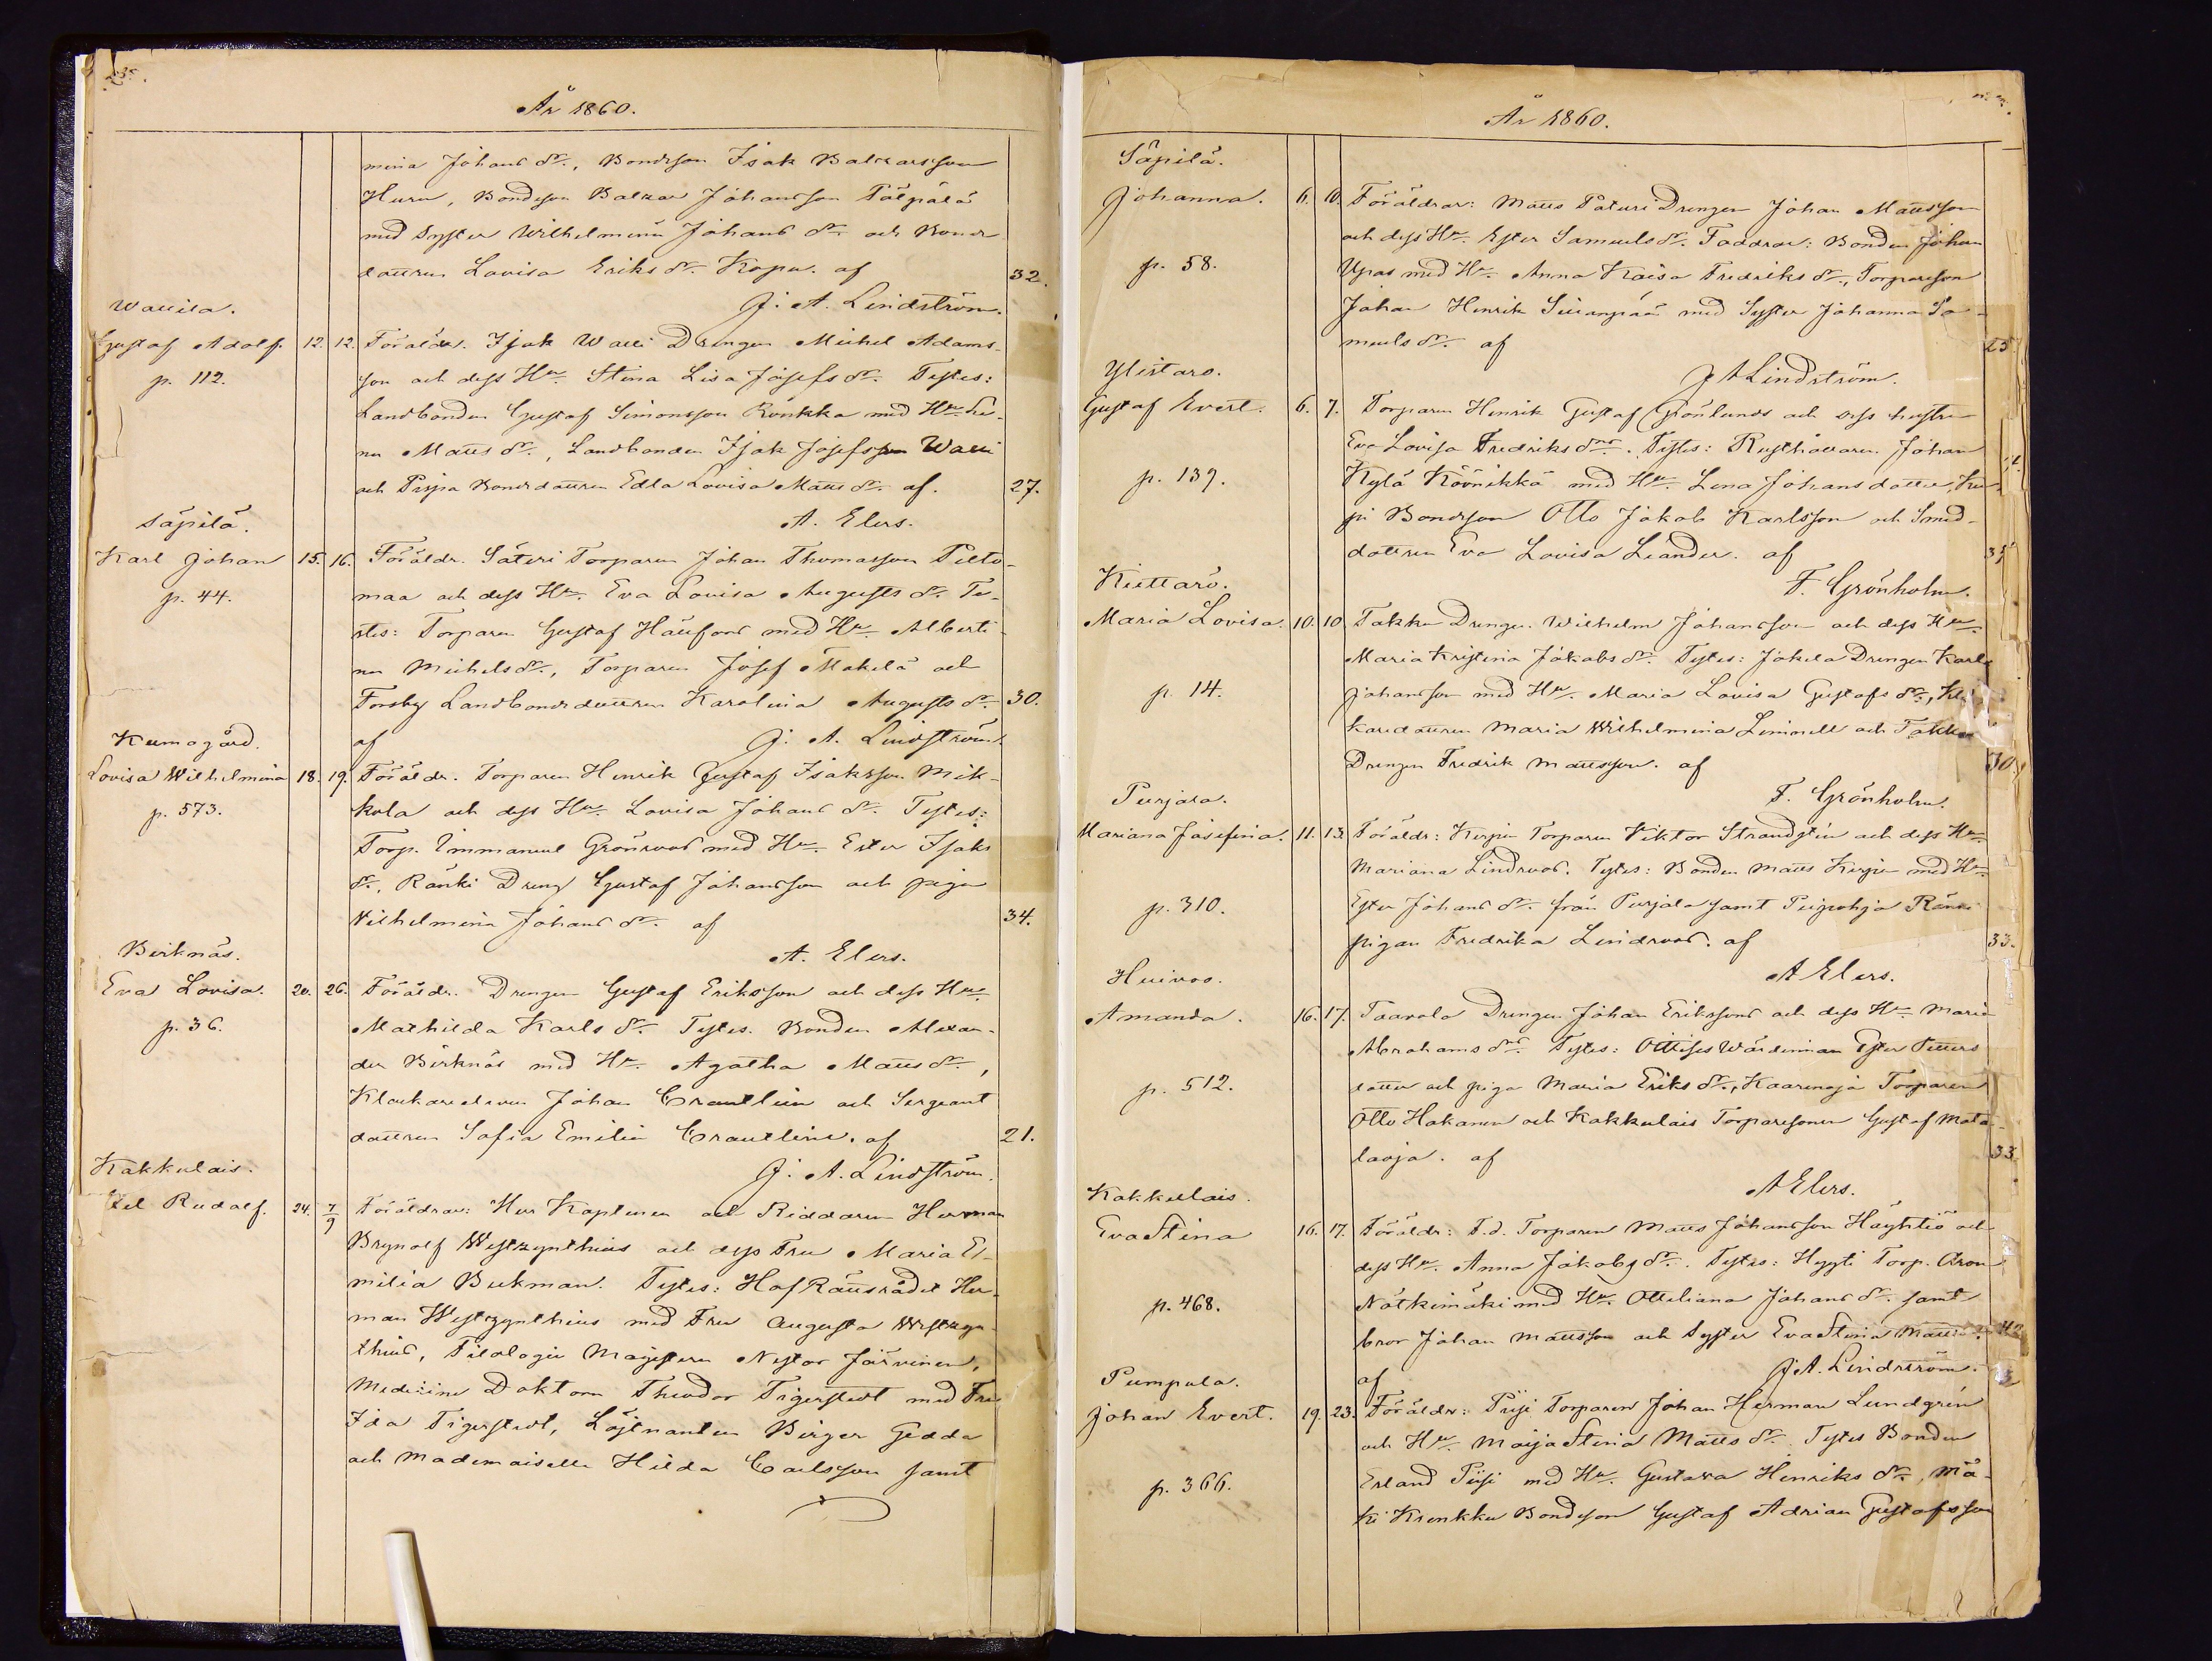 År 1860.
mina Johans dr., Bondeson Isak Balzarsson
Huru, Bondeson Balzar Johansson Pälpälä
med Syster Wilhelmina Johans dr. och Bonde
dottren Lovisa Eriks dr. Kopu. af 32.
J. A. Lindström.
Wallila.
Gustaf Adolf. 12. 12. Föräldr. Isak Walli Drengen Michel Adams-
p. 112. son och dess Hu. Stina Lisa Josefs dr. Testes:
Landbonden Gustaf Simonsson Ronkka med Hu.
na Matts dr., Landbonden Isak Josefsson Walli
och Pispa Bondedottren Edla Lovisa Matts dr. af. 27.
A. Elers.
Säpilä.
Karl Johan 15. 16. Föräldr. Säteri Torparen Johan Thomasson Pelto-
p. 44. maa och dess Hu. Eva Lovisa Augusts dr. Te-
stes: Torparen Gustaf Häufors med Hu. Alberti-
na Michels dr., Torparen Josef Mäkelä och
Forsby Landbondedottren Karolina Augusts dr. 30.
af J. A. Lindström.
Kumogård.
Lovisa Wilhelmina 18. 19. Föräldr. Torparen Henrik Gustaf Isaksson Mik-
p. 573. kola och dess Hu. Lovisa Johans dr. Testes:
Torp. Immanuel Grönroos med Hu. Ester Isaks
dr., Ränki Dreng Gustaf Johansson och piga
Wilhelmina Johans dr. af 34.
A. Elers.
Birknäs.
Eva Lovisa. 20. 26. Föräldr. Drengen Gustaf Eriksson och dess Hu.
p. 36. Mathilda Karls dr. Testes. Bonden Alexan-
der Birknäs med Hu. Agatha Matts dr.,
Klockareeleven Johan Crautlin och Sergeant
dottren Sofia Emilia Crautlin. af 21.
J. A. Lindström.
Kakkulais.
Rudolf. 24. 7/9 Föräldrar: Herr Kaptenen och Riddaren Herman
Brynolf Westzynthius och dess Fru Maria E-
milia Bukman. Testes: HofRättsrådet Her-
man Westzynthius med Fru Augusta Westzyn-
thius, Filologie Magistern Nestor Järvinen,
Medicine Doktorn Theodor Tigerstedt med Fru
Ida Tigerstedt, Löjtnanten Birger Gedda
och Mademoiselle Hilda Carlsson samt
År 1860.
Säpilä.
Johanna. 6. 10. Föräldrar: Matts Päturi Drengen Johan Mattsson
och dess Hu. Ester Samuels dr. Faddrar: Bonden Johan
p. 58. Upas med Hu. Anna Kaisa Fredriks dr., Torpareson
Johan Henrik Suianpää med Syster Johanna Sa-
muels dr. af 25
J A Lindström.
Ylistaro.
Gustaf Evert. 6. 7. Torparen Henrik Gustaf Grönlund och dess hustru
Eva Lovisa Fredriks dr. Testes: Rusthållaren Johan
p. 139. Kylä Köönikkä med Hu. Lena Johans dotter,
pi Bondeson Otto Jakob Karlsson och Smed-
dottren Eva Lovisa Leander. af 35
F. Grönholm.
Kiettarö.
Maria Lovisa. 10. 10 Takku Drengen Wilhelm Johansson och dess Hu.
Maria Kristina Jakobs dr. Testes: Jokela Drengen Karl
p. 14. Johansson med Hu. Maria Lovisa Gustafs dr.,
karedottren Maria Wilhelmina Liminell och Takku
Drengen Fredrik Mattsson. af 30.
F. Grönholm.
Purjala.
Mariana Josefina. 11. 13. Föräldr: Kirpin Torparen Viktor Strandstén och dess Hu.
Mariana Lindroos. Testes: Bonden Matts Kirpi med Hu.
p. 310. Ester Johans dr. från Purjala samt Peipohja Ränki
pigan Fredrika Lindroos. af 33.
A Elers.
Huivoo.
Amanda. 16. 17. Taavola Drengen Johan Eriksson och dess Hu. Maria
Abrahams dr. Testes: Ottises Wärdinnan Ester Petters
p. 512. dotter och piga Maria Eriks dr., Kaarenoja Torparen
Otto Hakanen och Kakkulais Torparesonen Gustaf Mata-
laoja. af 33
A Elers.
Kakkulais.
Eva Stina 16. 17. Föräldr: F.d. Torparen Matts Johansson Häyhtiö och
dess Hu. Anna Jakobs dr. Testes: Hyyti Torp. Aron
p. 468. Nätkimäki med Hu. Otteliana Johans dr. samt
bror Johan Mattsson och Syster Eva Stina Matts
af J. A. Lindström.
Pumpula.
Johan Evert. 19. 23. Föräldr: Piiji Torparen Johan Herman Lundgrén
och Hu. Maija Stina Matts dr. Testes Bonden
p. 366. Erland Piiji med Hu. Gustava Henriks dr., Mä-
ki Krenkku Bondeson Gustaf Adrian Gustafsson